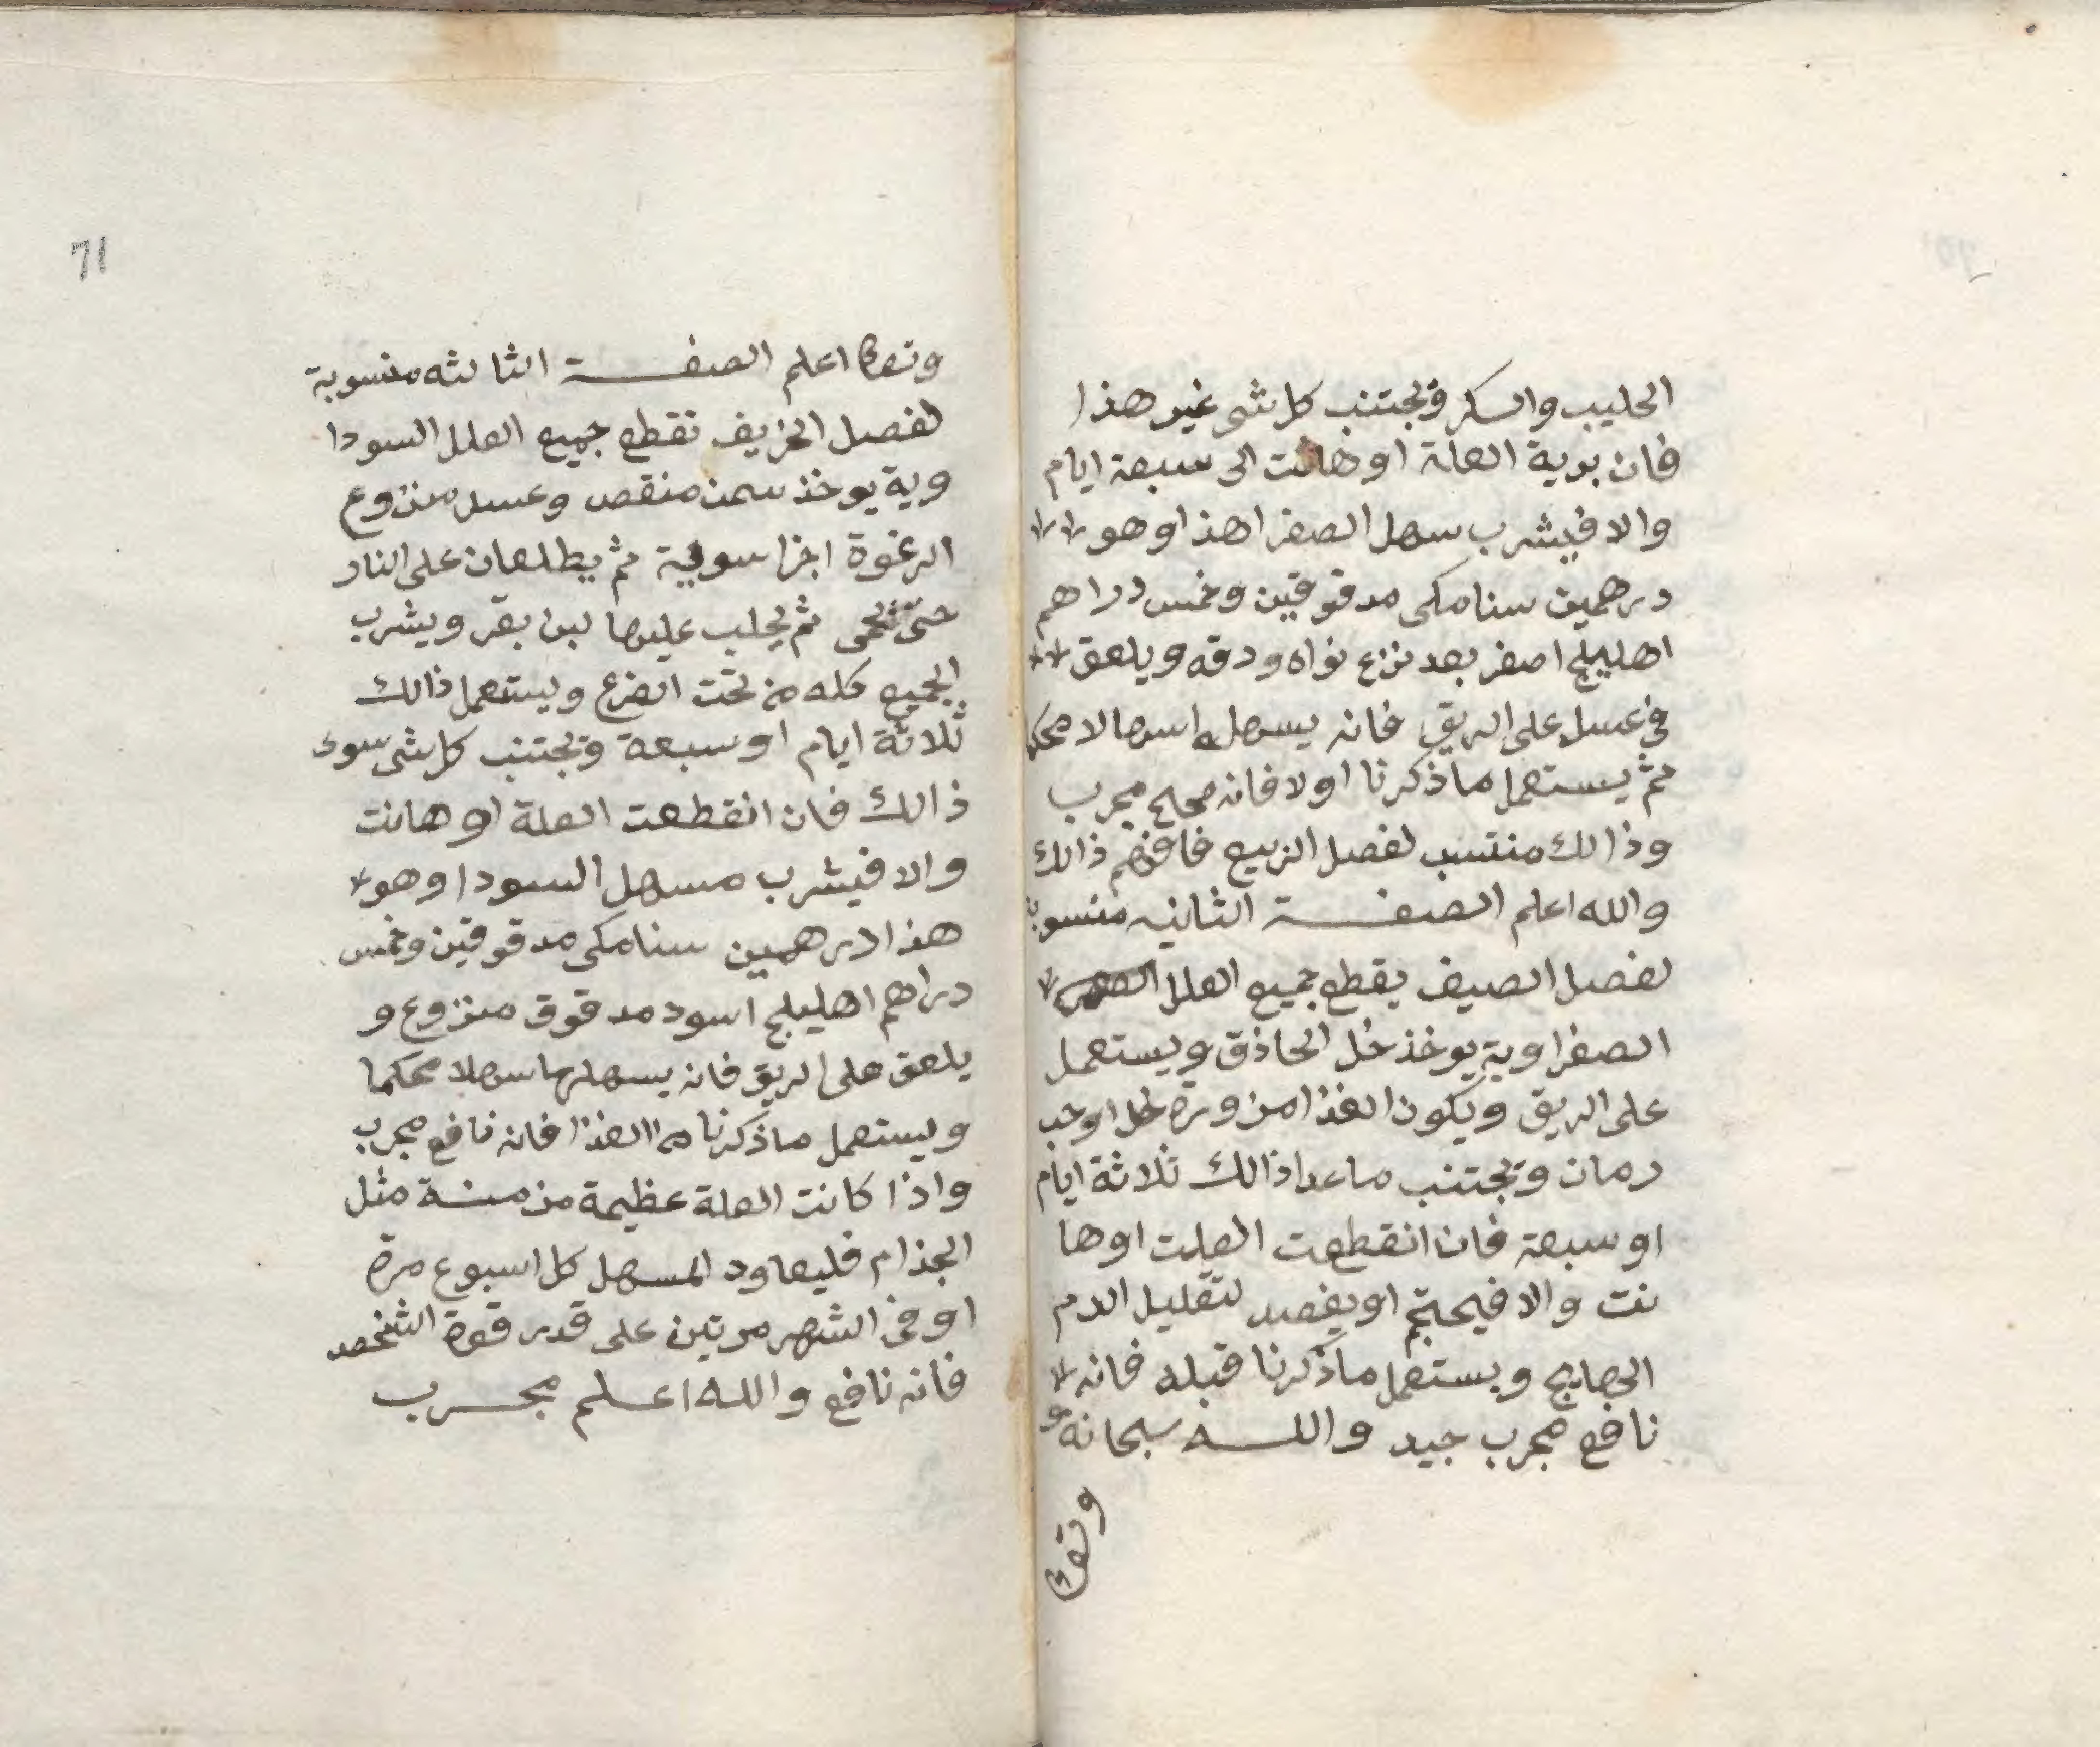 الحليب والسكر ويجتنب كل شى غير هذا
فان برية العلة اوهانت الى سبعة ايام
والا فيشرب سهل الصفرا هذا وهو
درهمين سنا مكى مدقوقين وخمس دراهم
اهليلج اصفر بعد نزع نواه ودقه ويلعق
فى عسل على الريق فانه يسهله اسهالا محكما
ثم يستعمل ماذكرنا اولا فانه صحيح مجرب
وذالك منتسب لفصل الربيع فافهم ذالك
والله اعلم الصفة الثانيه منسوبة
لفصل الصيف يقطع جميع العلل
الصفراوية يوخذ خل الحاذق ويستعمل
على الريق ويكون الغذا مزورة خل اوحب
رمان ويجتنب ماعدا ذالك ثلاثة ايام
اوسبعة فان انقطعت العلت اوها
نت والا فيحتجم اويفصد لتقليل الدم
الهايج ويستعمل ماذكرنا قبله فانه
نافع مجرب جيد والله سبحانه و
وتعا
71
وتعا اعلم الصفة الثالثه منسوبة
لفصل الخريف تقطع جميع العلل السودا
وية يوخذ سمن منقص وعسل منزوع
الرغوة اجزا سوية ثم يطلعان على النار
حتى تحمى ثم يحلب عليها لبن بقر ويشرب
الجميع كله من تحت الضرع ويستعمل ذالك
ثلاثة ايام اوسبعة ويجتنب كل شى سوى
ذالك فان انقطعت العلة اوهانت
والا فيشرب مسهل السودا وهو
هذا درهمين سنا مكى مدقوقين وخمس
دراهم اهليلج اسود مدقوق منزوع و
يلعق على الريق فانه يسهلها سهلا محكما
ويستعمل ماذكرنا من الغذا فانه نافع مجرب
واذا كانت العلة عظيمة مزمنة مثل
الجذام فليعاود المسهل كل اسبوع مرة
اوفى الشهر مرتين على قدر قوة الشخص
فانه نافع والله اعلم مجرب